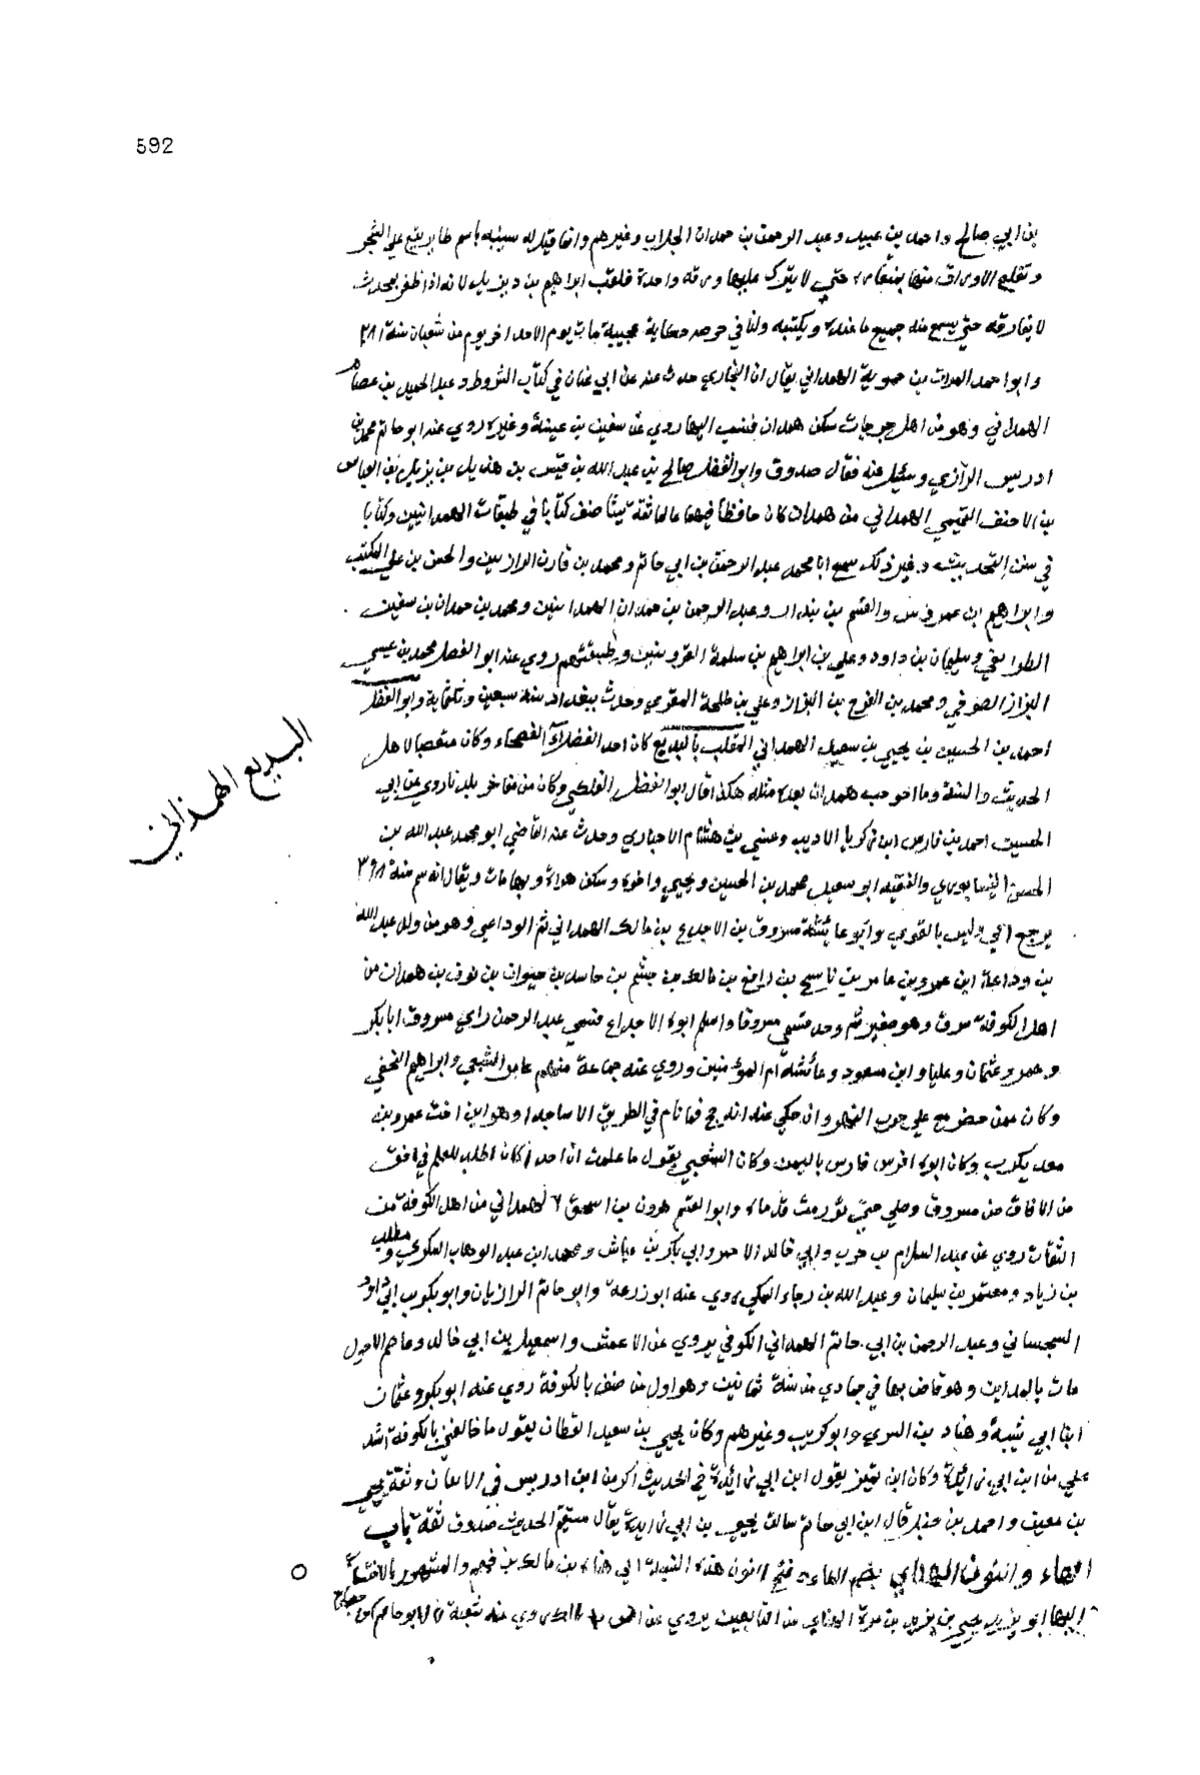 592
بن ابي صالح واحمد بن عبيد وعبد الرحمن بن حمدان الجلاب وغيرهم وانما قيل له سيبنه باسم طاير يقع علي الشجر
وتقليم الاوراق منها ينتفا حتي لا يترك عليها ورقه واحدة فلقب ابراهيم بن ديزيل لانه اذا ظفر بمحدث
لا يفارقه حتي يسمع منه جميع ما عنده ويكتبه ولنا في حرصه حكاية عجيبة مات يوم الاحد اخر يوم من شعبان سنة ٢٨١
وابو احمد المرار بن حموية الهمداني يقال ان البخاري حدث عنه عن ابي غسان في كتاب الشروط وعبد الحميد بن عصام
الهمداني وهو من اهل جرجان سكن همدان فنسب اليها روي عن سفين بن عيينة وغيره روي عنه ابو حاتم محمد بن
ادريس الرازي وسئيل عنه فقال صدوق وابو الفضل صالح بن عبد الله بن قيس بن هذيل بن يزيد بن العباس
بن الاحنف التميمي الهمداني من همدان كان حافظا فهما عالما ثقة بيتا صنف كتابا في طبقات الهمدانيين وكتابا
في سنن التحديث وغير ذلك سمع ابا محمد عبد الرحمن بن ابي حاتم ومحمد بن قارن الرازيين والحسن بن علي المكتب
وابراهيم ابن عمروس والقسم بن بندار وعبد الرحمن بن حمدان الهمدانيين ومحمد بن حمدان بن سفين
الطرايفي وسليمان بن داود وعلي بن ابراهيم بن سلمة القزوينيين وطبقتهم روي عنه ابو الفضل محمد بن عيسي
البزاز الصوفي ومحمد بن الفرج بن البزاز وعلي بن طلحة المقري وحدث ببغداد سنة سبعين وثلثماية وابو الفضل
احمد بن الحسين بن يحيي بن سعيد الهمداني الملقب بالبديع كان احد الفضلاء الفصحاء وكان متعصبا لاهل
الحديث والسنة وما اخرجت همدان بعده مثله هكذا قال ابو الفضل الفلكي وكان من مفاخر بلدنا روي عن ابي
البديع الهمذاني
الحسين احمد بن فارس ابن زكريا الاديب وعيسي بن هشام الاخباري وحدث عنه القاضي ابو محمد عبد الله بن
الحسن النيسابوري والفقيه ابو سعيد محمد بن الحسين ويحيي واخوه وسكن هراة وبها مات ويقال انه سم سنة ٣٩٨
يرجع الي وليس بالقوي وابو عايشة مسروق بن الاجدع بن مالك الهمداني ثم الوداعي وهو من ولد عبد الله
بن وداعة ابن عمرو بن عامر بن ناسج بن رافع بن مالك بن جشم بن حاسد بن حيوان بن نوف بن همدان من
اهل الكوفة سرق وهو صغير ثم وجد فسمي مسروقا واسلم ابوه الاجدع فسمي عبد الرحمن راي مسروق ابا بكر
وعمر وعثمان وعليا وابن مسعود وعائشة ام المؤمنين وروي عنه جماعة منهم عامر الشعبي وابراهيم النخعي
وكان ممن حضر مع علي حرب النهروان حكي عنه انه حج فما نام في الطريق الا ساجدا وهو ابن اخت عمرو بن
معد يكرب وكان ابوه افرس فارس باليمن وكان الشعبي يقول ما علمت ان احدا كان اطلب للعلم في افق
من الافاق من مسروق وصلي حتي تورمت قدماه وابو القسم هرون بن اسحق الهمداني من اهل الكوفة من
الثقات روي عن عبد السلام بن حرب وابي خالد الاحمر وابي بكر بن عياش ومحمد ابن عبد الوهاب السكري ومطلب
بن زياد ومعتمر بن سليمان وعبد الله بن رجاء المكي روي عنه ابو زرعة وابو حاتم الرازيان وابو بكر بن ابي داود
السجستاني وعبد الرحمن بن ابي حاتم الهمداني الكوفي يروي عن الاعمش واسمعيل بن ابي خالد وعاصم الاحول
مات بالمداين وهو قاض بها في جمادي من سنة ثمانين وهو اول من صنف بالكوفة روي عنه ابو بكر وعثمان
ابنا ابي شيبة وهناد بن السري وابو كريب وغيرهم وكان يحيي بن سعيد القطان يقول ما خالفني بالكوفة اشد
علي من ابن ابي زائدة وكان ابن نمير يقول ابن ابي زائدة في الحديث اكثر من ابن ادريس في الاتقان وثقه يحيي
بن معين واحمد بن حنبل قال ابن ابي حاتم سالت يحيي بن ابي زايدة يقال مستقيم الحديث صدوق ثقة باب
الهاء والنون الهناي بضم الهاء وفتح النون هذه النسبة الي هناه بن مالك بن فهم والمشهور بالانتساب
اليها ابو يزيد يحيي بن يزيد بن مرة الهناي من التابعين يروي عن انس بن مالك روي عنه شعبة